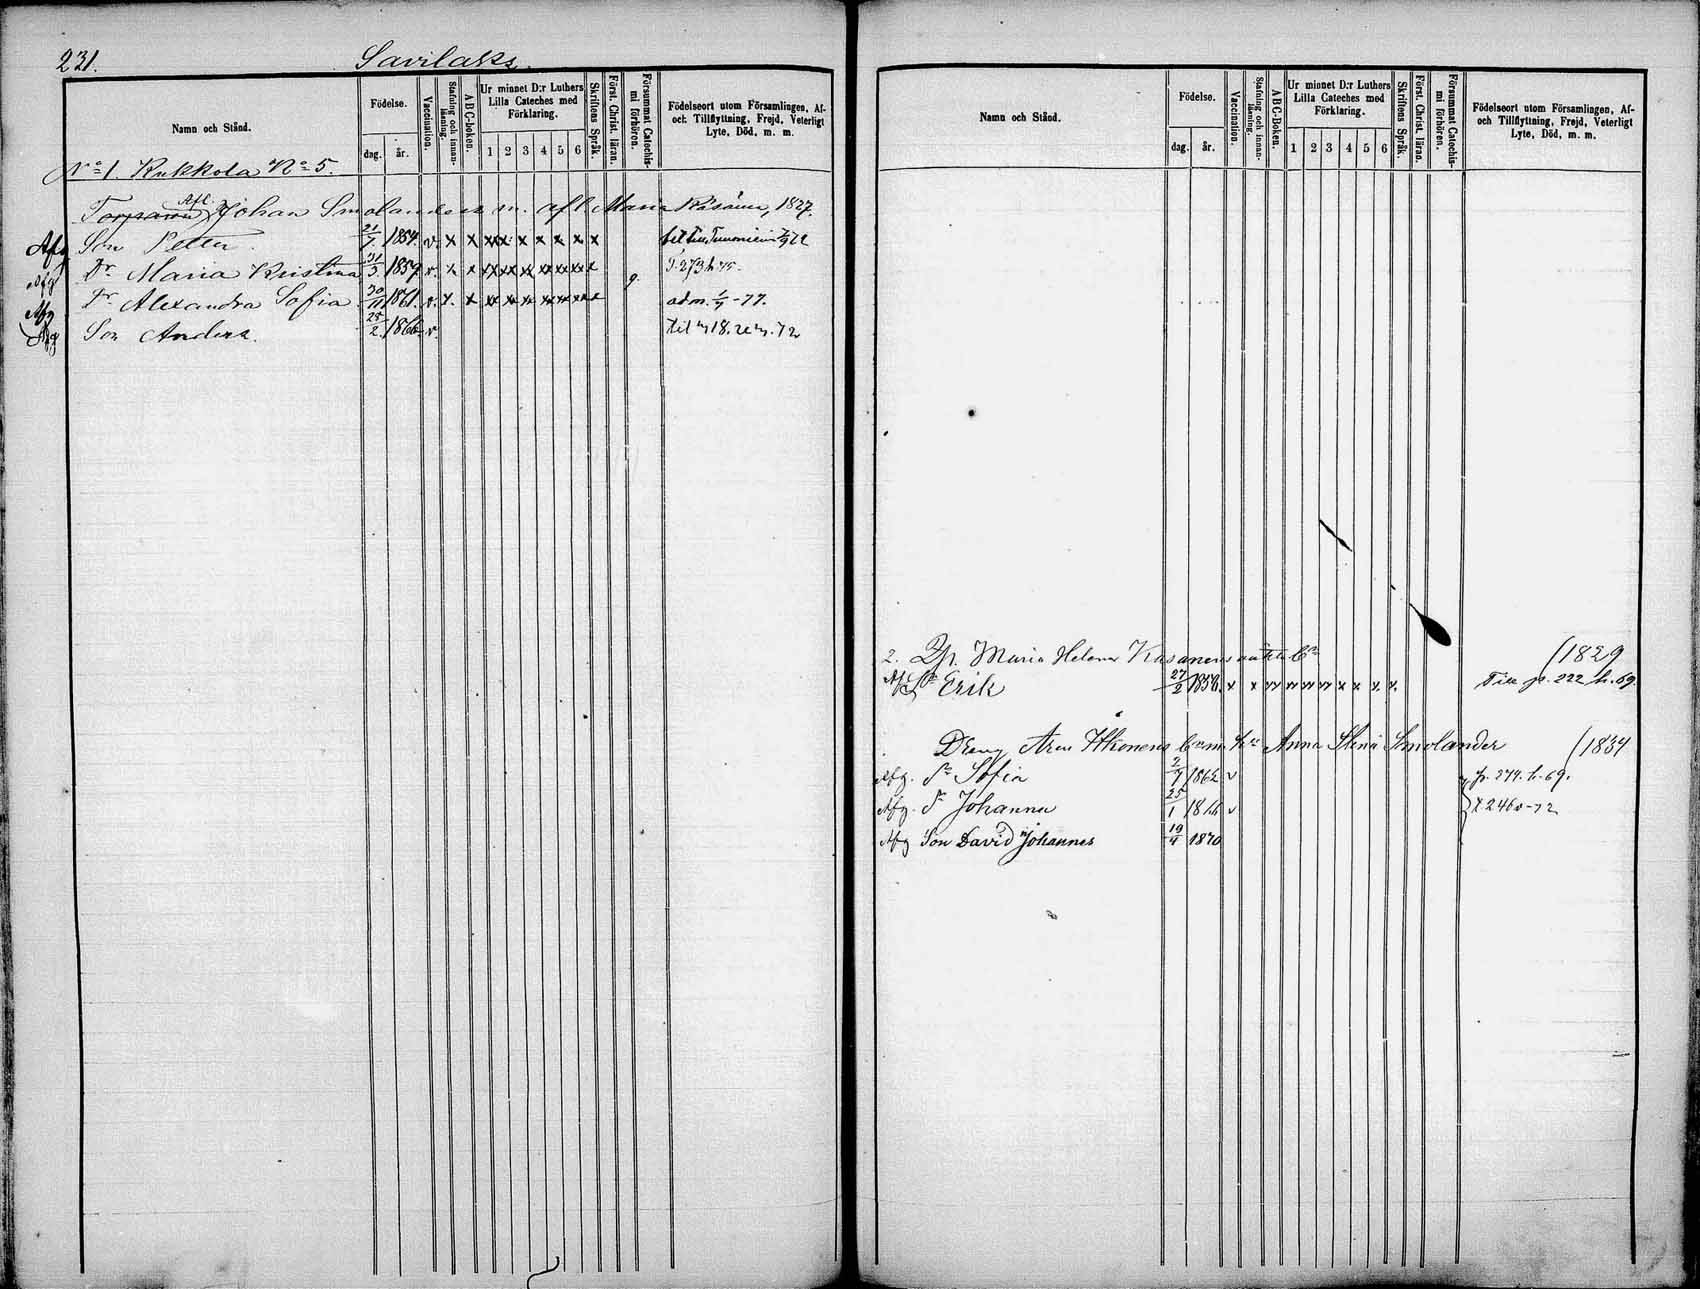 231. Savilaks.
Namn och Stånd.
Födelse.
dag. år.
Vaccination.
Stafning och innanläsning.
ABC-boken.
Ur minnet D:r Luthers Lilla Cateches med Förklaring.
1 2 3 4 5 6
Skriftens Språk.
Först. Christ. läran.
Försummat Catechismi förhören.
Födelseort utom Församlingen, Af- och Tillflyttning, Frejd, Veterligt Lyte, Död, m. m.
No 1. Kukkola No 5.
Afl.
Johan Smolanders m. afl. Maria Räsänen, 1827.
Afg Son Petter. 21/7 1854. v. x x xxx x x x x x
Afg Dr Maria Kristina 31/3 1859. v. x x xx xx xx xx xx xx x g.
Afg Dr Alexandra Sofia 30/11 1861. v. x. x xx xx xx xx xx xx x adm. -77.
Afg Son Anders. 25/2 1866 v.
Namn och Stånd.
Födelse.
dag. år.
Vaccination.
Stafning och innanläsning.
ABC-Boken.
Ur minnet D:r Luthers Lilla Cateches med Förklaring.
1 2 3 4 5 6
Skriftens Språk.
Först. Christ. läran.
Försummat Catechismi förhören.
Födelseort utom Församlingen, Af- och Tillflyttning, Frejd, Veterligt Lyte, Död, m. m.
2. Maria Helena (1829
Erik 27/2 1858. x x xx xx xx xx x x x. x. Till p. 222 h. 69.
Dreng Itkonens Anna Stina Smolander (1834
Afg. Sofia 2/7 1862 v p. 379. h-69.
Afg. Johanna 25/1 1866 v
Afg Son David Johannes 19/4 1870